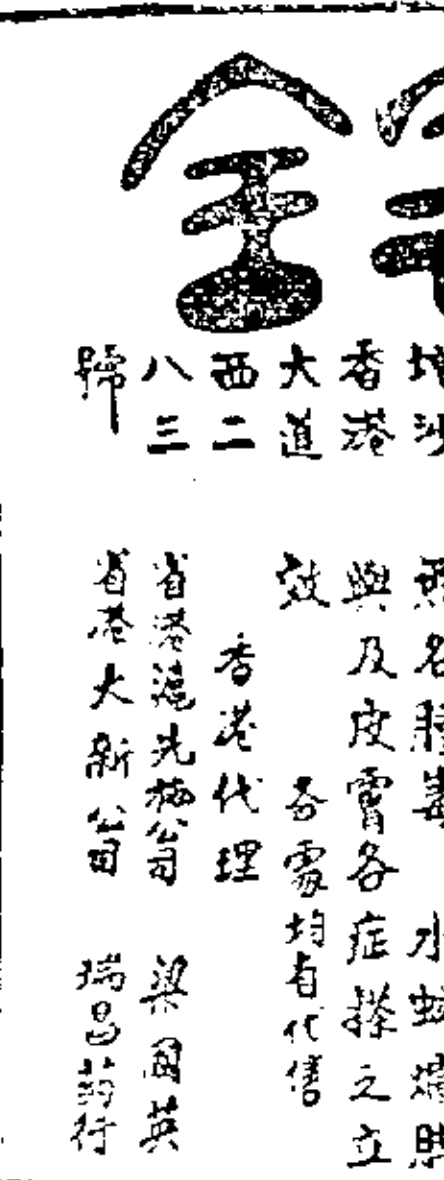 金
香港
大道
西二
八三
號
與及皮膚各症搽之立
效
各處均有代售
香港代理
省港滬先施公司
梁國英
省港大新公司
瑞昌葯行